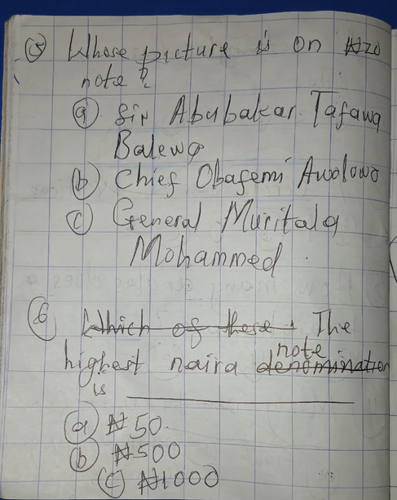 (5) Whose picture is on ₦20
note?
(a) Sir Abubakar Tafawa
Balewa
(b) Chief Obafemi Awolowo
(c) General Muritala
Mohammed.
(6) Which of these. The
highest naira denomination note
is ____________
(a) ₦50.
(b) ₦500
(c) ₦1000